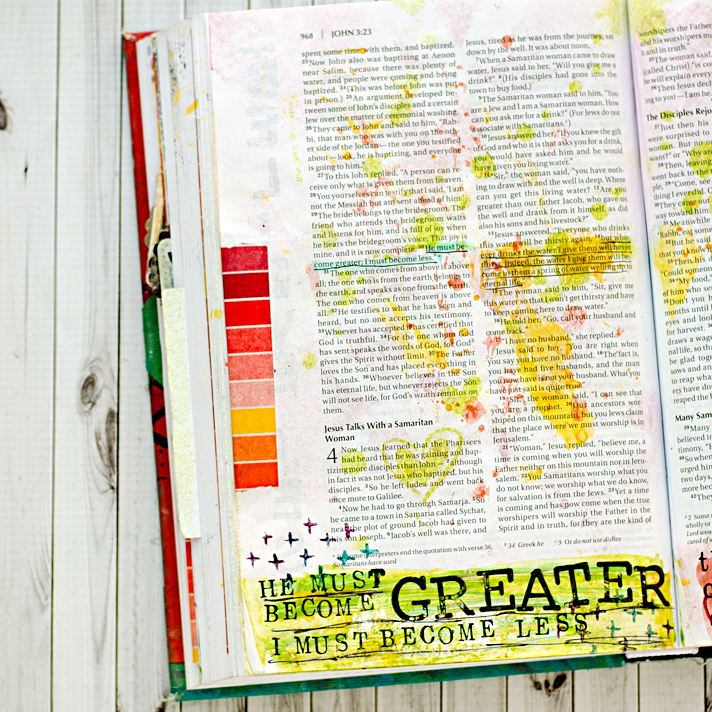 968 | JOHN 3:23
spent some time with them, and baptized.
23Now John also was baptizing at Aenon
near Salim, because there was plenty of
water, and people were coming and being
baptized. 24(This was before John was put
in prison.) 25An argument developed be-
tween some of John's disciples and a certain
Jew over the matter of ceremonial washing.
26They came to John and said to him, "Rab-
bi, that man who was with you on the oth-
er side of the Jordan—the one you testified
about—look, he is baptizing, and everyone
is going to him."
27To this John replied, "A person can re-
ceive only what is given them from heaven.
28You yourselves can testify that I said, 'I am
not the Messiah but am sent ahead of him.'
29The bride belongs to the bridegroom. The
friend who attends the bridegroom waits
and listens for him, and is full of joy when
he hears the bridegroom's voice. That joy is
30He must be-
come greater; I must become less."
31The one who comes from above is above
all; the one who is from the earth belongs to
the earth, and speaks as one from the earth.
The one who comes from heaven is above
all. 32He testifies to what he has seen and
heard, but no one accepts his testimony.
33Whoever has accepted it has certified that
God is truthful. 34For the one whom God
has sent speaks the words of God, for God
gives the Spirit without limit. 35The Father
loves the Son and has placed everything in
his hands. 36Whoever believes in the Son
has eternal life, but whoever rejects the Son
will not see life, for God's wrath remains on
them.
Jesus Talks With a Samaritan
Woman
4 Now Jesus learned that the Pharisees
had heard that he was gaining and bap-
tizing more disciples than John— 2although
in fact it was not Jesus who baptized, but his
disciples. 3So he left Judea and went back
once more to Galilee.
4Now he had to go through Samaria. 5So
he came to a town in Samaria called Sychar,
near the plot of ground Jacob had given to
his son Joseph. 6Jacob's well was there, and
Jesus, tired as he was from the journey, sat
down by the well. It was about noon.
7When a Samaritan woman came to draw
water, Jesus said to her, "Will you give me a
drink?" 8(His disciples had gone into the
town to buy food.)
9The Samaritan woman said to him, "You
are a Jew and I am a Samaritan woman. How
can you ask me for a drink?" (For Jews do not
associate with Samaritans.)
10Jesus answered her, "If you knew the gift
of God and who it is that asks you for a drink,
you would have asked him and he would
have given you living water."
11"Sir," the woman said, "you have noth-
ing to draw with and the well is deep. Where
can you get this living water? 12Are you
greater than our father Jacob, who gave us
the well and drank from it himself, as did
also his sons and his livestock?"
13Jesus answered, "Everyone who drinks
this water will be thirsty again, 14but who-
ever drinks the water I give them will never
thirst. Indeed, the water I give them will be-
come in them a spring of water welling up to
eternal life."
15The woman said to him, "Sir, give me
this water so that I won't get thirsty and have
to keep coming here to draw water."
16He told her, "Go, call your husband and
come back."
17"I have no husband," she replied.
Jesus said to her, "You are right when
you say you have no husband. 18The fact is,
you have had five husbands, and the man
you now have is not your husband. What you
19"Sir," the woman said, "I can see that
you are a prophet. 20Our ancestors wor-
shiped on this mountain, but you Jews claim
that the place where we must worship is in
Jerusalem."
21"Woman," Jesus replied, "believe me, a
time is coming when you will worship the
Father neither on this mountain nor in Jeru-
salem. 22You Samaritans worship what you
do not know; we worship what we do know,
for salvation is from the Jews. 23Yet a time
is coming and has now come when the true
worshipers will worship the Father in the
Spirit and in truth, for they are the kind of
interpreters end the quotation with verse 36.
34 Greek he
9 Or do not use dishes
Samaritans have used
The Disciples Rejo
HE MUST
BECOME GREATER
I MUST BECOME LESS